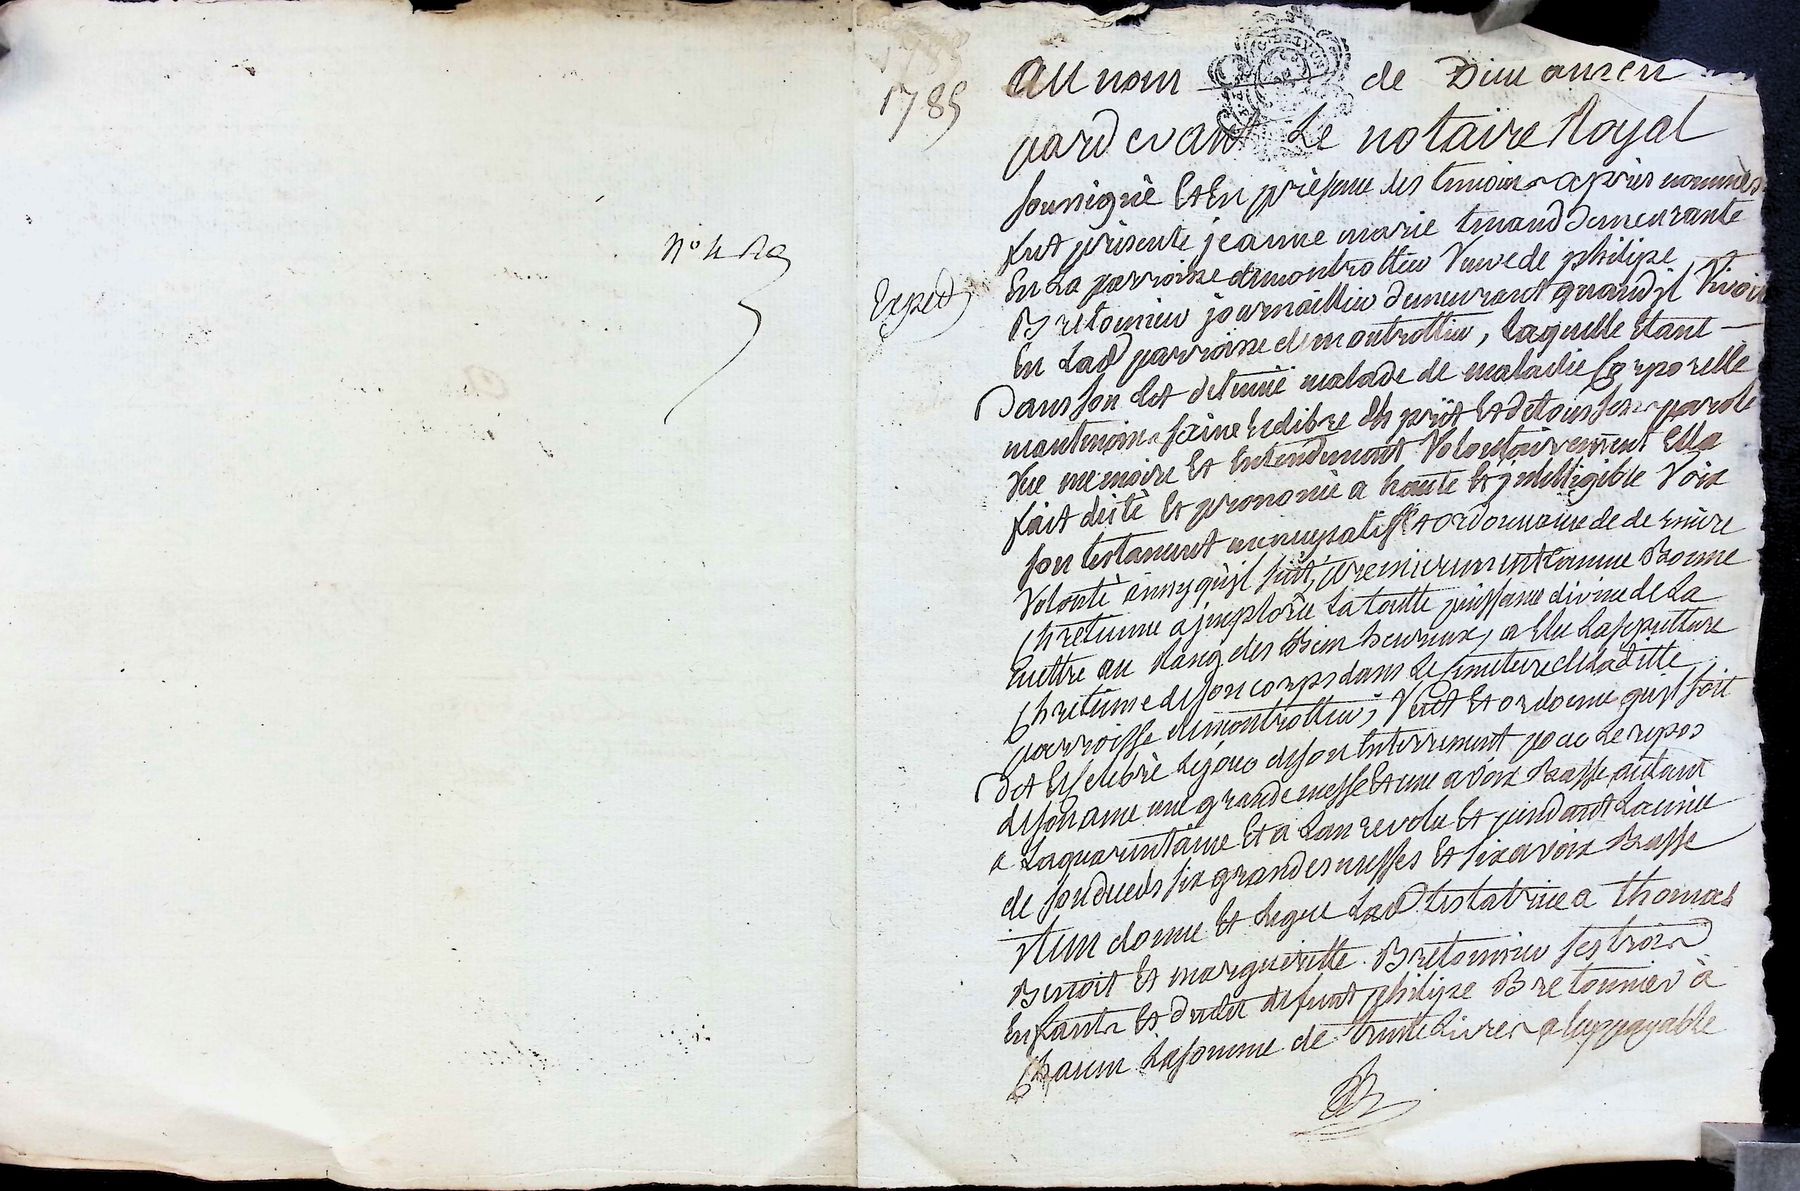 1785
1785
Exped
au nom de Dieu amen
pardevant Le notaire Royal
soussignè Et En prèsence des temoins après nommès
fut prèsente jeanne marie demeurante
En La parroisse de montrottier Veuve de philipe
Bretonnier journaillier demeurant quand jl Vivoit
En Lad parroisse de montrottier, Laquelle Etant
Dans son lit detenuë malade de maladie Corporelle
maintenoins saine Et libre desprit Et de tous ses parole
Vue memoire Et Entendement Volontairement Ella
fait dictè Et prononcè a haute Et jntelligible Voix
son testament nuncupatif Et ordonnance de derniere
Volontè ainsy qu'jl suit, premierement Comme Bonne
Chretienne a jmplorèe La toutte puissance divine de La
mettre au Rang des Bien heureux, a Elu La sepulture
Chretienne de son corps dans Le cimetiere de Laditte
parroisse de montrottier, Veut Et ordonne qu'jl soit
dit Et celebrè Le jour de son Enterrement pour Le repos
de son ame une grande messe Et une a voix Basse autant
a La quarantaine Et a Lan revolu Et pendant Lannee
de son deceds six grandes messes Et six a voix Basse
jtem donne Et Legue Lad testatrice a thomas
Benoit Et margueritte Bretonnier ses trois
Enfants Et dudit defunt philipe Bretonnier à
Chacun La somme de trente Livres a Eux payable